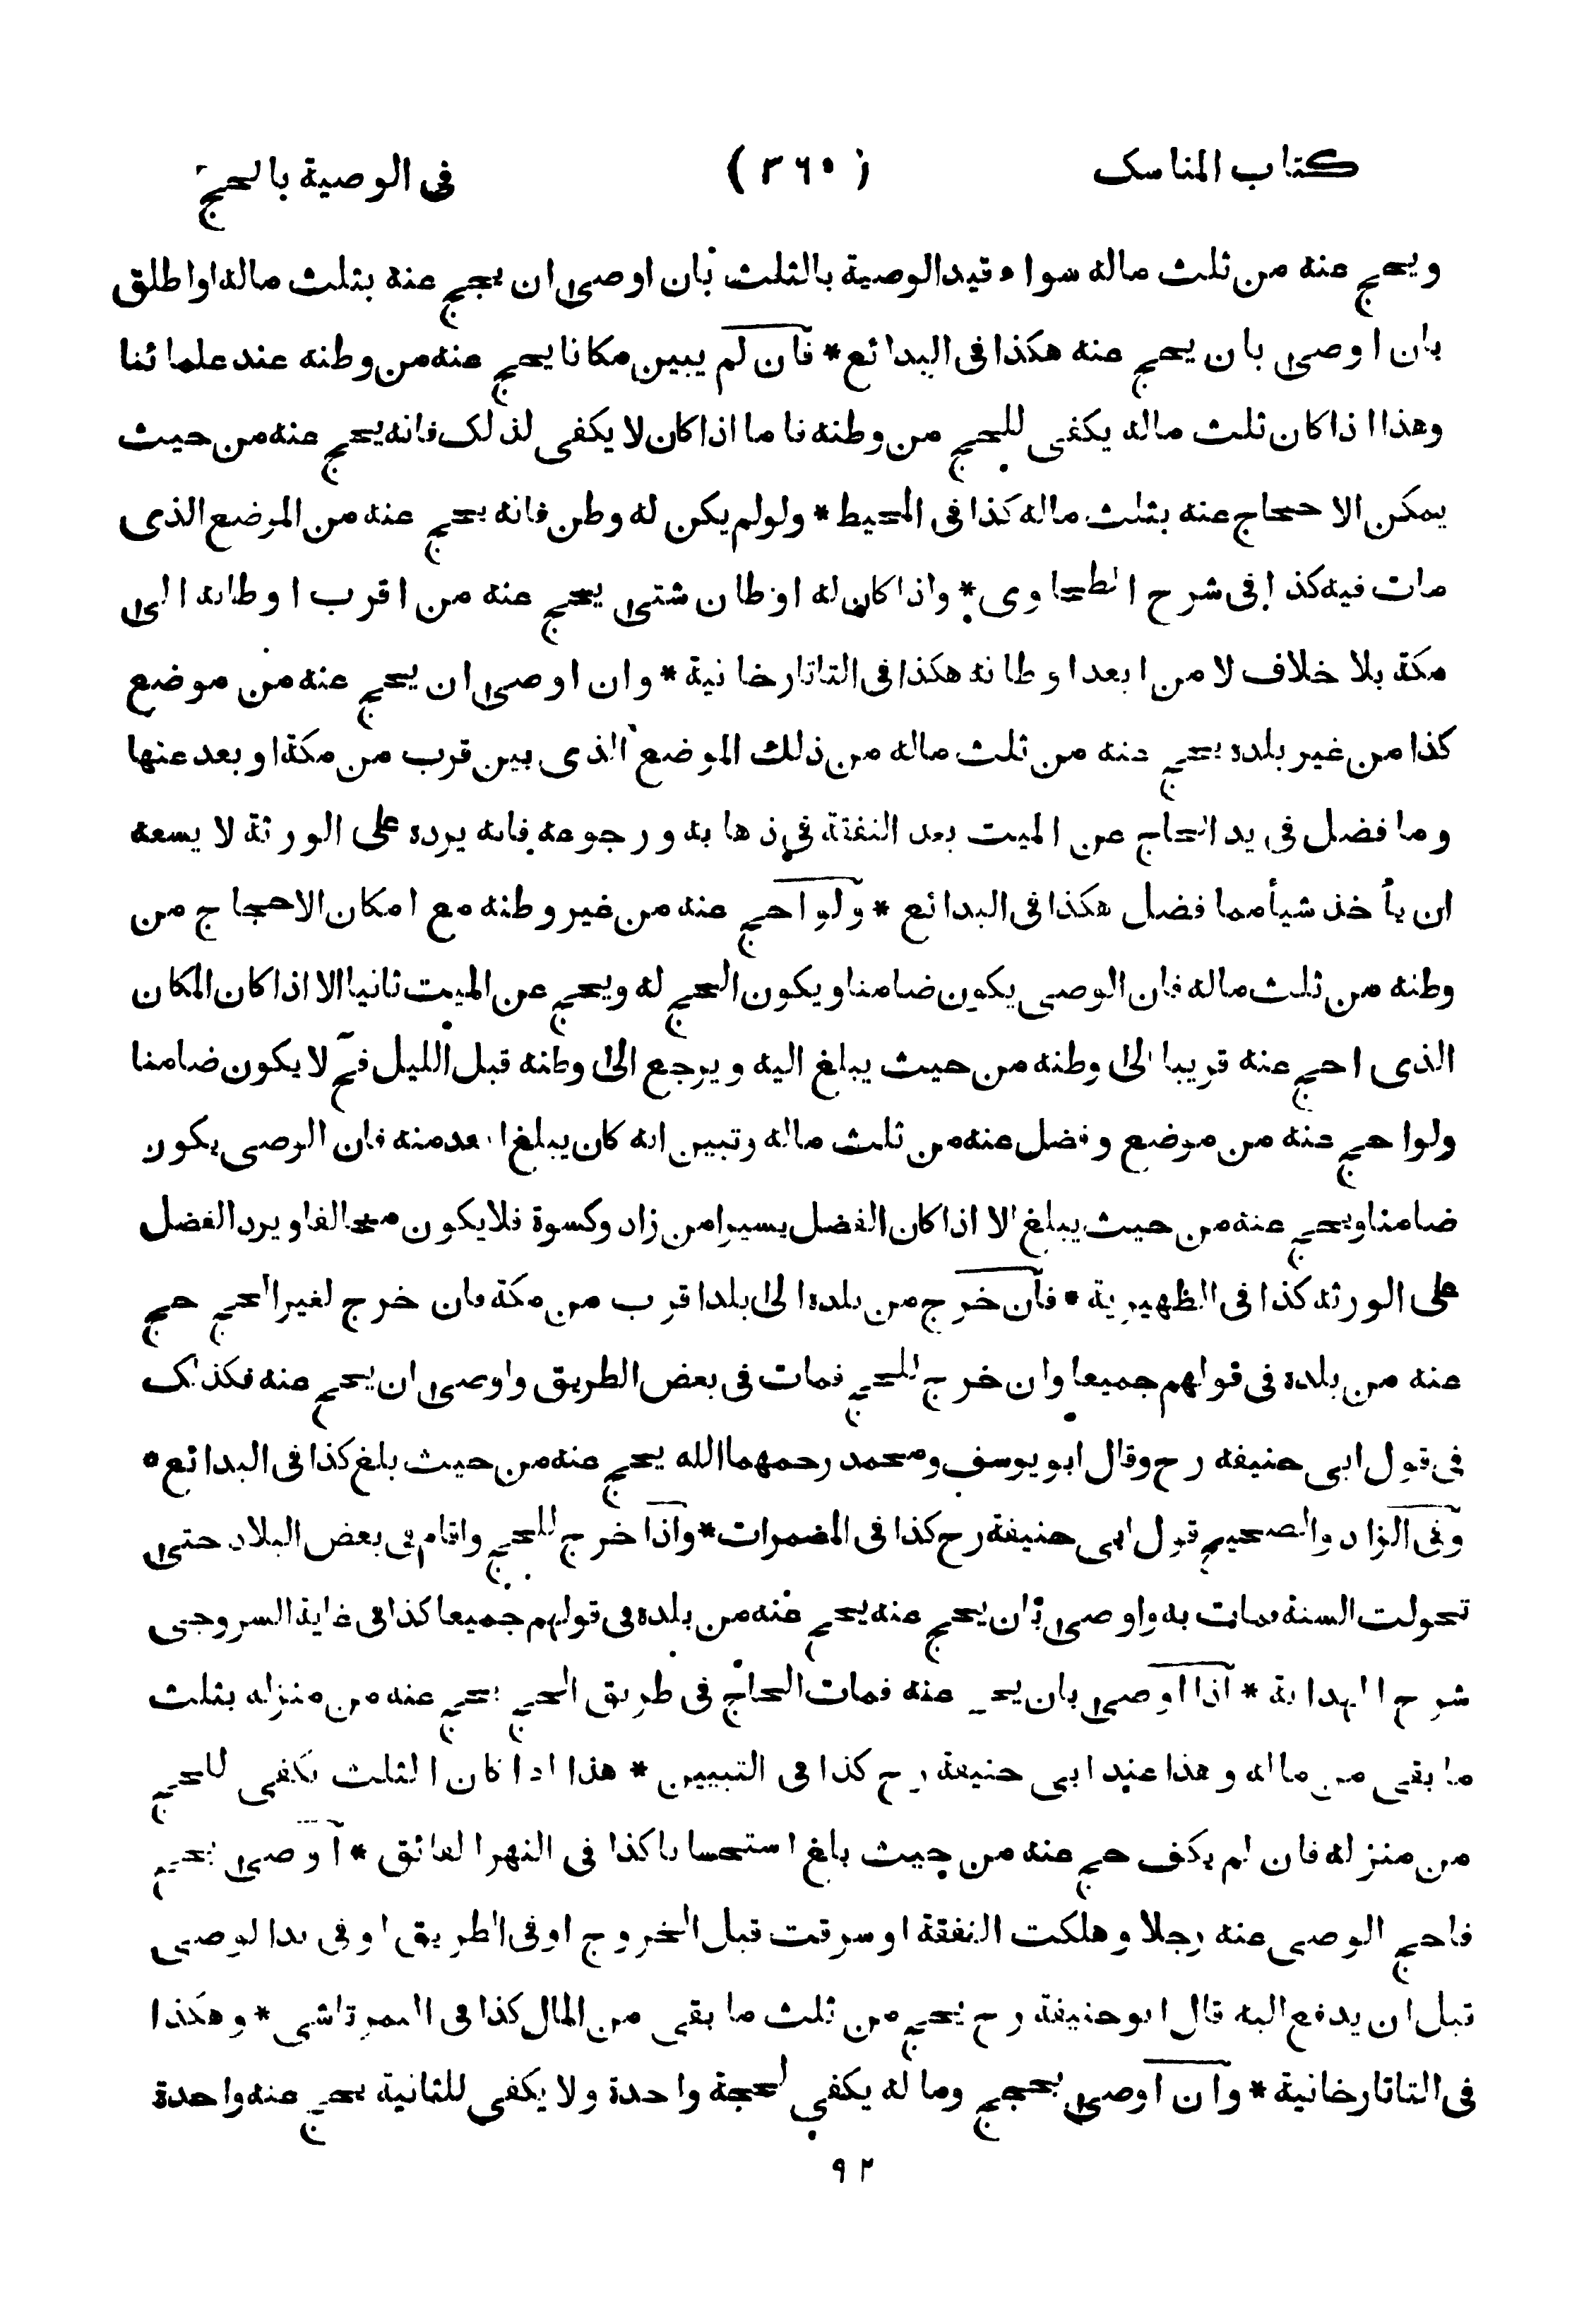 كتاب المناسك (٣٦٥) فى الوصية بالحج
ويحج عنه من ثلث ماله سواء قيد الوصية بالثلث بان اوصى ان يحج عنه بثلث ماله او اطلق
بان اوصى بان يحج عنه هكذا فى البدائع * فان لم يبين مكانا يحج عنه من وطنه عند علمائنا
وهذا اذا كان ثلث ماله يكفى للحج من وطنه فاما اذا كان لا يكفى لذلك فانه يحج عنه من حيث
يمكن الاحجاج عنه بثلث ماله كذا فى المحيط * ولو لم يكن له وطن فانه يحج عنه من الموضع الذى
مات فيه كذا فى شرح الطحاوى * واذا كان له اوطان شتى يحج عنه من اقرب اوطانه الى
مكة بلا خلاف لا من ابعد اوطانه هكذا فى التاتارخانية * وان اوصى ان يحج عنه من موضع
كذا من غير بلده يحج عنه من ثلث ماله من ذلك الموضع الذى بين قرب من مكة او بعد عنها
وما فضل فى يد الحاج عن الميت بعد النفقة فى ذهابه ورجوعه فانه يرده على الورثة لا يسعه
ان يأخذ شيأ مما فضل هكذا فى البدائع * ولو احج عنه من غير وطنه مع امكان الاحجاج من
وطنه من ثلث ماله فان الوصى يكون ضامنا ويكون الحج له ويحج عن الميت ثانيا الا اذا كان المكان
الذى احج عنه قريبا الى وطنه من حيث يبلغ اليه ويرجع الى وطنه قبل الليل فح لا يكون ضامنا
ولو احج عنه من موضع وفضل عنه من ثلث ماله وتبين انه كان يبلغ ابعد منه فان الوصى يكون
ضامنا ويحج عنه من حيث يبلغ الا اذا كان الفضل يسيرا من زاد وكسوة فلا يكون مخالفا ويرد الفضل
على الورثه كذا فى الظهيرية * فان خرج من بلده الى بلد اقرب من مكة فان خرج لغير الحج حج
عنه من بلده فى قولهم جميعا وان خرج للحج فمات فى بعض الطريق واوصى ان يحج عنه فكذلك
فى قول ابى حنيفه رح وقال ابو يوسف ومحمد رحمهما الله يحج عنه من حيث بلغ كذا فى البدائع *
وفى الزاد والصحيح قول ابى حنيفة رح كذا فى المضمرات * واذا خرج للحج واقام فى بعض البلاد حتى
تحولت السنة فمات به واوصى بان يحج عنه يحج عنه من بلده فى قولهم جميعا كذا فى غاية السروجى
شرح الهداية * اذا اوصى بان يحج عنه فمات الحاج فى طريق الحج يحج عنه من منزله بثلث
ما بقى من ماله وهذا عند ابى حنيفة رح كذا فى التبيين * هذا اذا كان الثلث يكفى للحج
من منزله فان لم يكف حج عنه من حيث بلغ استحسانا كذا فى النهر الفائق * اوصى بحج
فاحج الوصى عنه رجلا وهلكت النفقة او سرقت قبل الخروج او فى الطريق او فى يد الوصى
قبل ان يدفع اليه قال ابو حنيفة رح يحج من ثلث ما بقى من المال كذا فى التمرتاشى * وهكذا
فى التاتارخانية * وان اوصى بحجج وماله يكفى لحجة واحدة ولا يكفى للثانية يحج عنه واحدة
٩٢